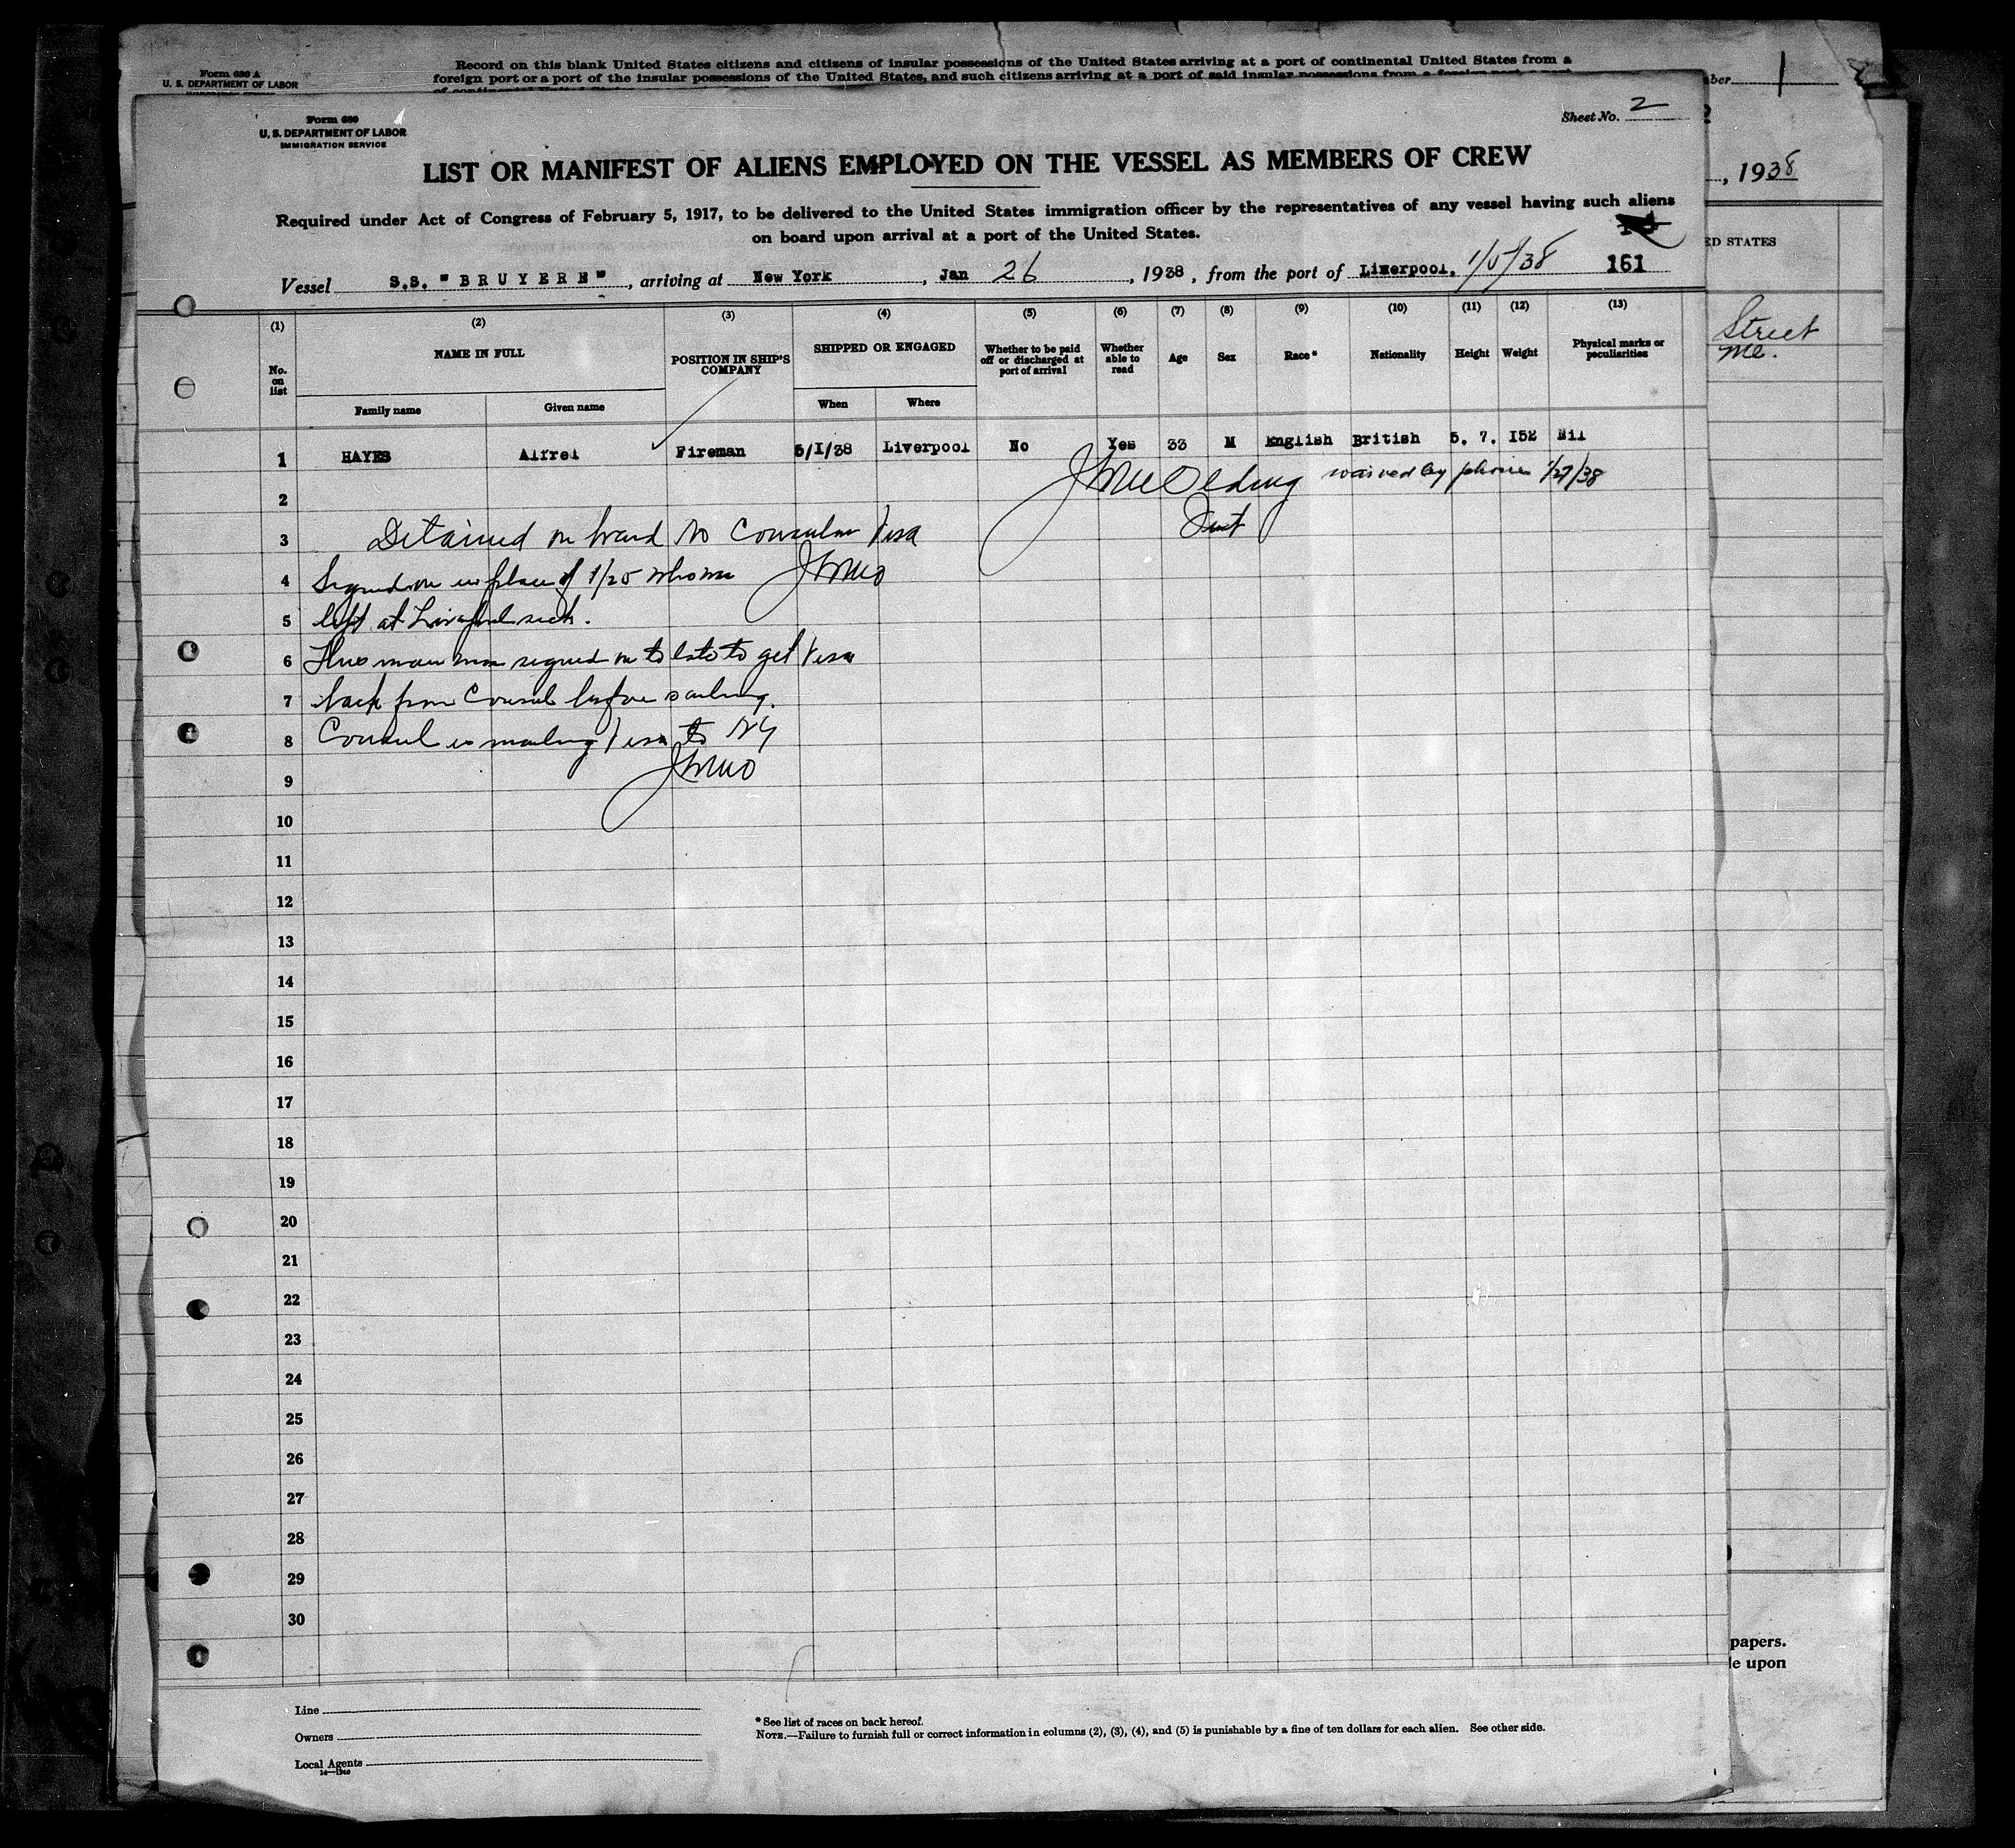 Form 630 A
U. S. DEPARTMENT OF LABOR
Record on this blank United States citizens and citizens of insular possessions of the United States arriving at a port of continental United States from a
foreign port or a port of the insular possessions of the United States, and such citizens arriving at a port of said insular possessions from a foreign port, a port
of continental United States
ber 1
, 1938
ED STATES
Street
Me.
papers.
le upon
Form 680
U. S. DEPARTMENT OF LABOR
IMMIGRATION SERVICE
Sheet No. 2
LIST OR MANIFEST OF ALIENS EMPLOYED ON THE VESSEL AS MEMBERS OF CREW
Required under Act of Congress of February 5, 1917, to be delivered to the United States immigration officer by the representatives of any vessel having such aliens
on board upon arrival at a port of the United States.
Vessel S.S. "BRUYERE", arriving at New York, Jan 26, 1938, from the port of Liverpool. 1/5/38 161
(1) (2) (3) (4) (5) (6) (7) (8) (9) (10) (11) (12) (13)
No. on list NAME IN FULL POSITION IN SHIP'S COMPANY SHIPPED OR ENGAGED Whether to be paid off or discharged at port of arrival Whether able to read Age Sex Race* Nationality Height Weight Physical marks or peculiarities
Family name Given name When Where
1 HAYES Alfred Fireman 5/I/38 Liverpool No Yes 33 M English British 5. 7. I52 Nil
2 waived by phone 1/27/38
3 Detained on board No Consular Visa
4 Signed on in place of 1/25 who was
5 left at Liverpool sick.
6 This man was signed on to late to get Visa
7 back from Consul before sailing.
8 Consul is mailing Visa to NY
9
10
11
12
13
14
15
16
17
18
19
20
21
22
23
24
25
26
27
28
29
30
Line
Owners
Local Agents
* See list of races on back hereof.
NOTE.—Failure to furnish full or correct information in columns (2), (3), (4), and (5) is punishable by a fine of ten dollars for each alien. See other side.